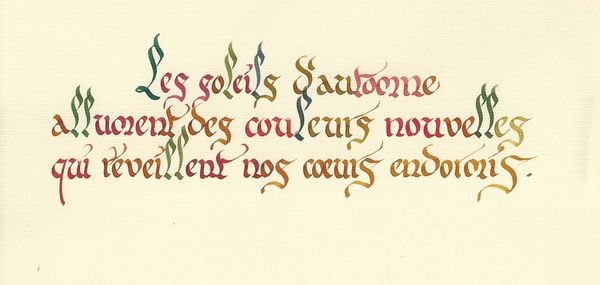 Les soleils d'automne
allument des couleurs nouvelles
qui réveillent nos cœurs endormis.